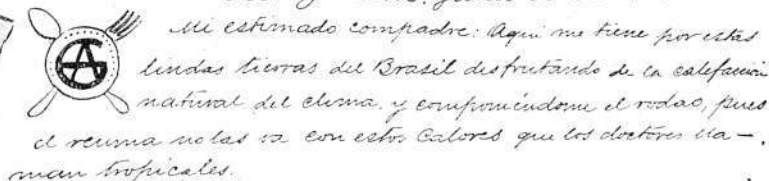 Mi estimado compadre: Aquí me tiene por estas
lindas tierras del Brasil disfrutando de la calefacción
natural del clima, y componiéndome el rodao, pues
el reuma no las va con estos calores que los doctores lla-
man tropicales.